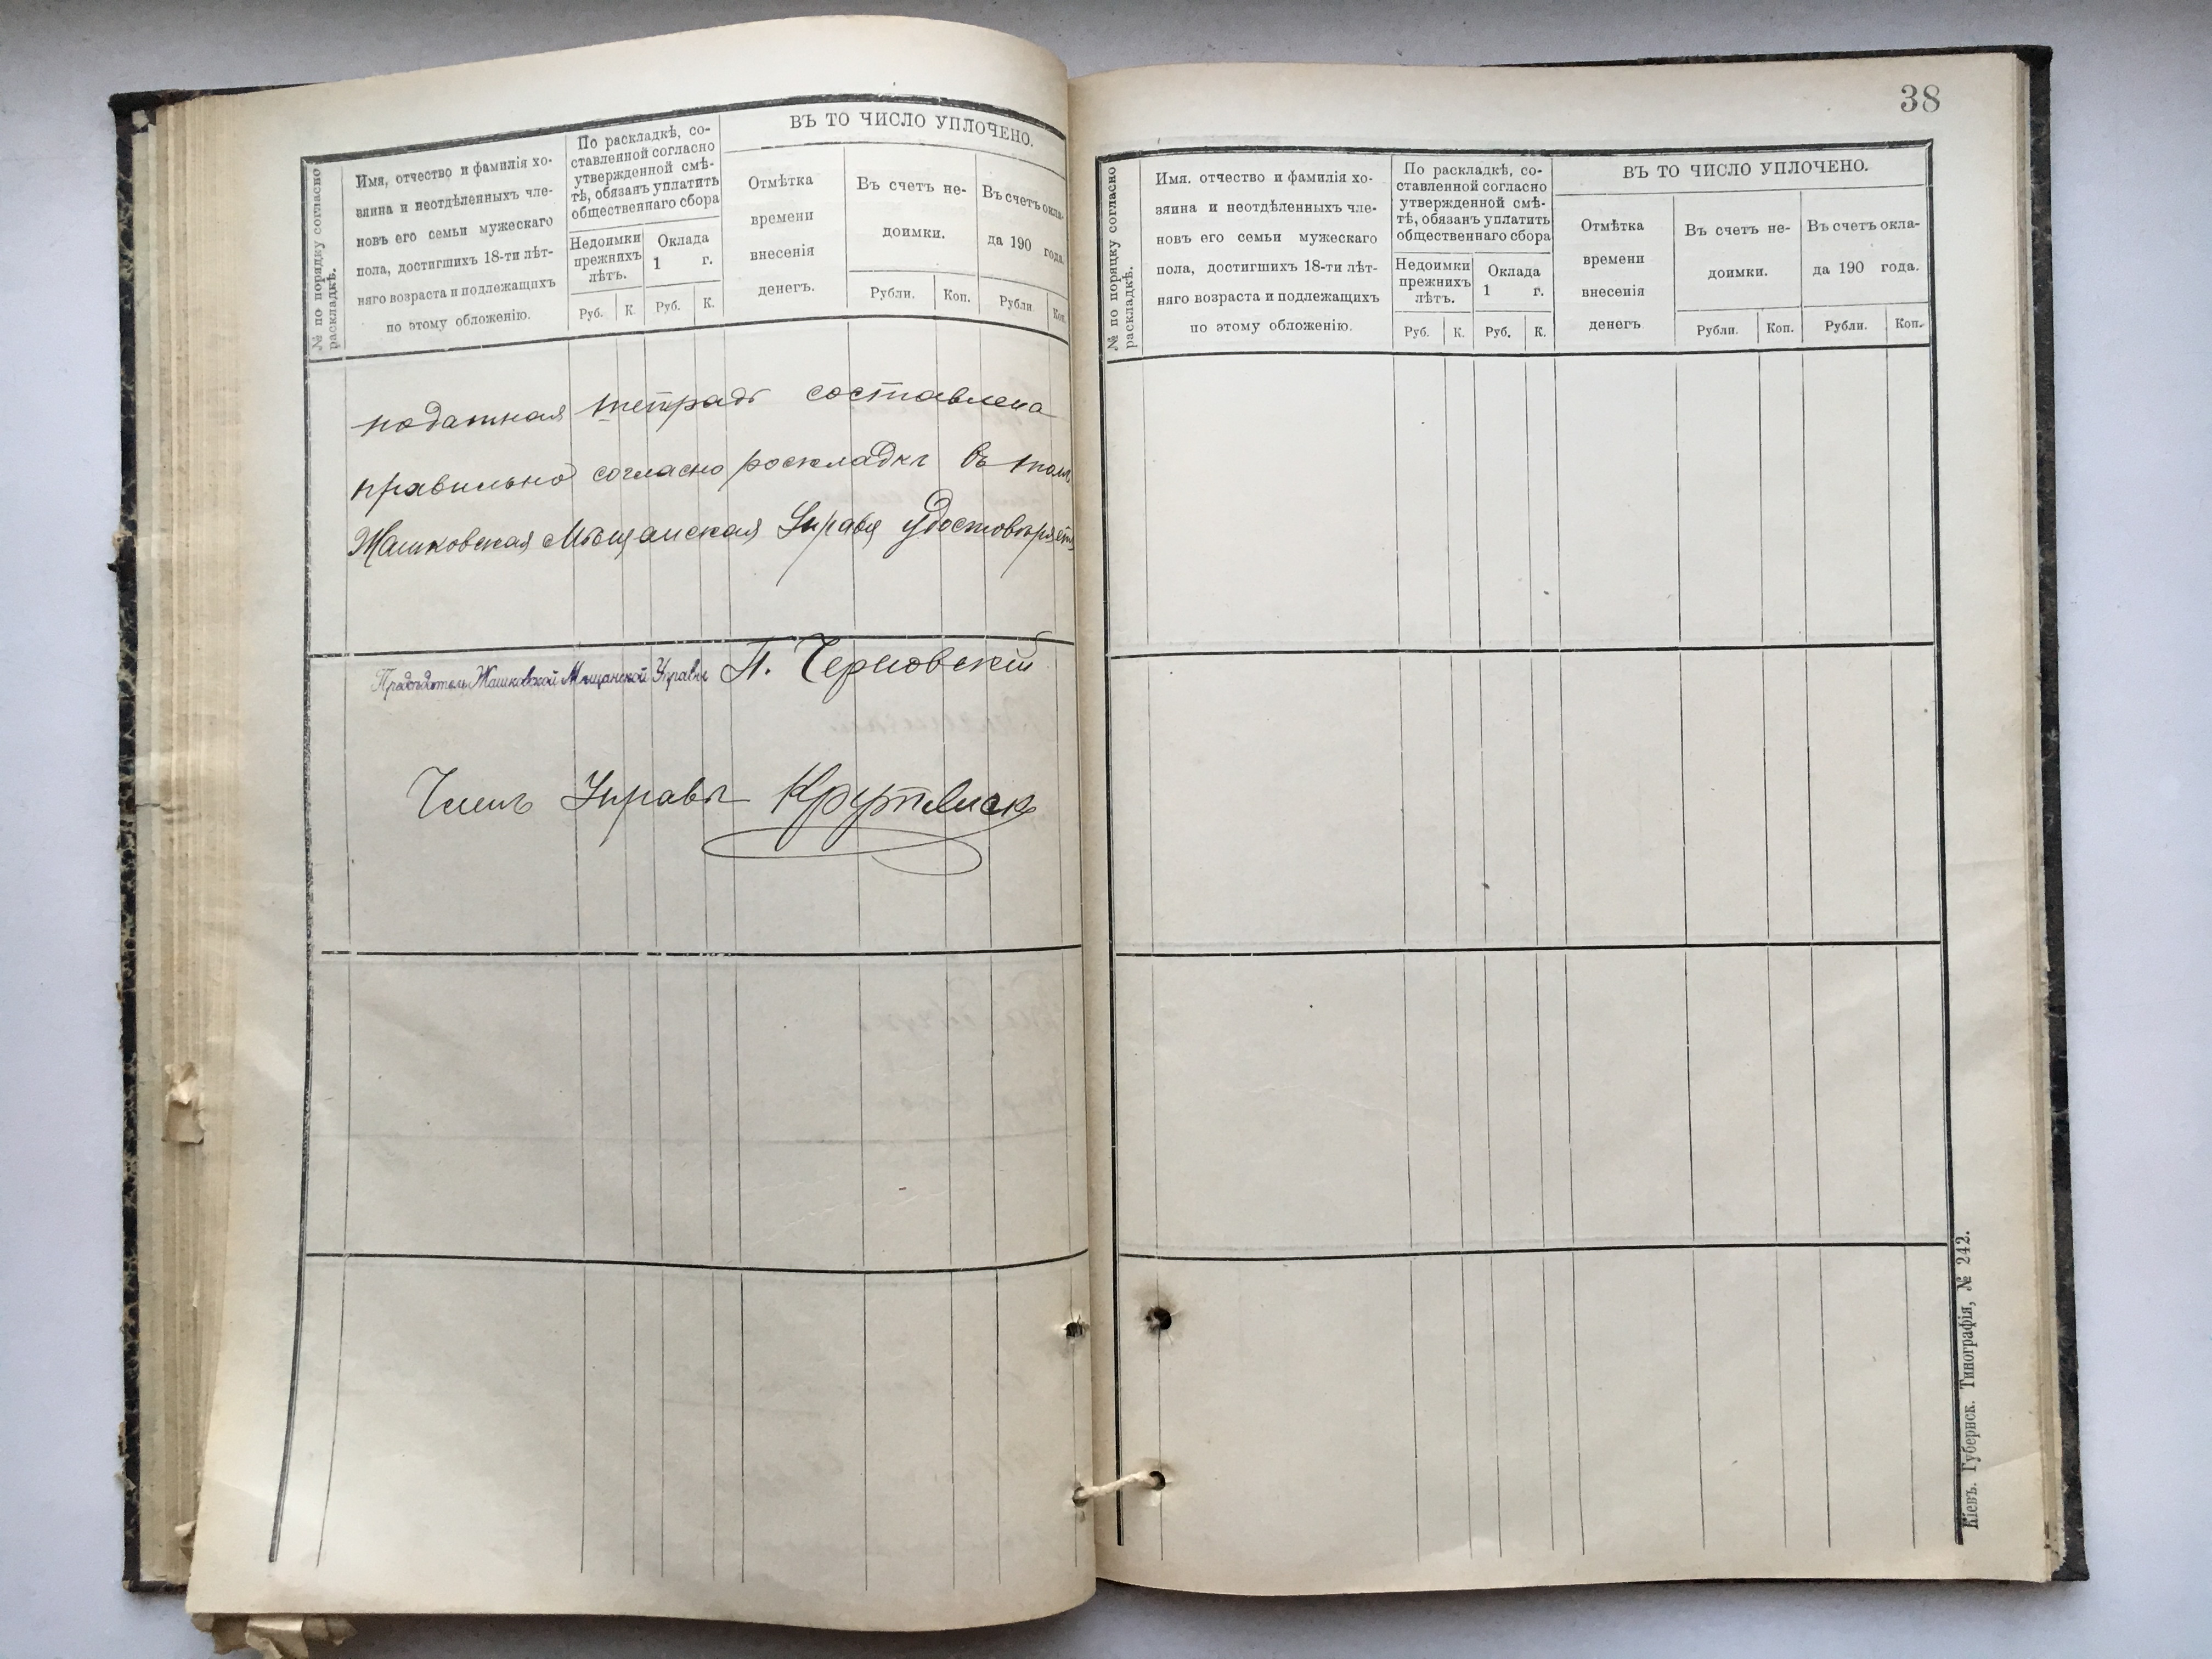 № по порядку согласно
раскладкѣ.
Имя, отчество и фамилія хо-
зяина и неотдѣленныхъ чле-
новъ его семьи мужескаго
пола, достигшихъ 18-ти лѣт-
няго возраста и подлежащихъ
по этому обложенію.
По раскладкѣ, со-
ставленной согласно
утвержденной смѣ-
тѣ, обязанъ уплатить
общественнаго сбора
Недоимки
прежнихъ
лѣтъ.
Оклада
1 г.
Руб. К. Руб. К.
ВЪ ТО ЧИСЛО УПЛОЧЕНО.
Отмѣтка
времени
внесенія
денегъ.
Въ счетъ не-
доимки.
Въ счетъ окла-
да 190 года.
Рубли. Коп. Рубли. Коп.
податная тетрадь составлена
правильно согласно роскладки въ томъ
Жашковская Мѣщанская Управа удостовѣряетъ
Предсѣдатель Жашковской Мѣщанской Управы П. Черновскій
Членъ Управы
38
№ по поряцку согласно
раскладкѣ.
Имя. отчество и фамилія хо-
зяина и неотдѣленныхъ чле-
новъ его семьи мужескаго
пола, достигшихъ 18-ти лѣт-
няго возраста и подлежащихъ
по этому обложенію.
По раскладкѣ, со-
ставленной согласно
утвержденной смѣ-
тѣ, обязанъ уплатить
общественнаго сбора
Недоимки
прежнихъ
лѣтъ.
Оклада
1 г.
Руб. К. Руб. К.
ВЪ ТО ЧИСЛО УПЛОЧЕНО.
Отмѣтка
времени
внесенія
денегъ
Въ счетъ не-
доимки.
Въ счетъ окла-
да 190 года.
Рубли. Коп. Рубли. Коп.
Кіевъ. Губернск. Типографія, № 242.